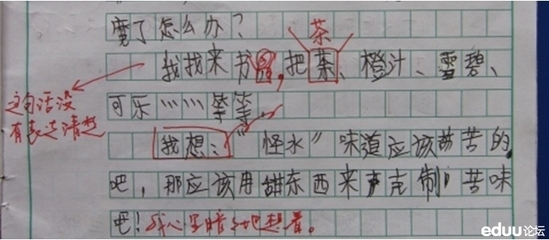 魔了怎么办?
茶
我找来 把茶、橙汁、雪碧、
可乐……等等,
这句话没
有表达清楚
我想:"怪水"味道应该苦苦的
吧,那应该用甜东西来克制苦味
吧!我心里暗暗地想着。
eduu论坛